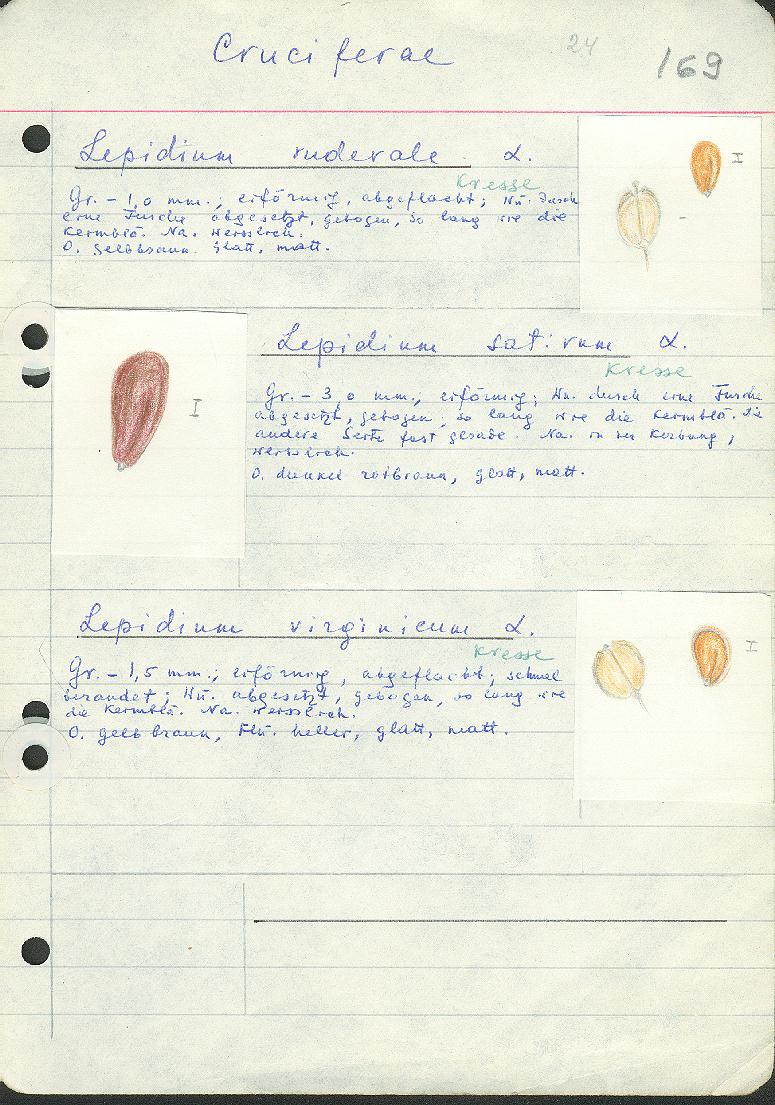 Cruciferae 24 169
Lepidium ruderale L.
Kresse
Gr. - 1,0 mm.; eiförmig, abgeflacht; Wü. durch
eine Furche abgesetzt, gebogen, so lang wie die
Keimblä. Na. weisslich.
O. gelbbraun. glatt, matt.
Lepidium sativum L.
Kresse
Gr. - 3,0 mm.; eiförmig; Wü. durch eine Furche
abgesetzt, gebogen; so lang wie die Keimblä. die
andere Seite fast gerade. Na. in der Kerbung,
weisslich.
O. dunkel rotbraun, glatt, matt.
Lepidium virginicum L.
Kresse
Gr. - 1,5 mm.; eiförmig, abgeflacht; schmal
berandet; Wü. abgesetzt, gebogen, so lang wie
die Keimblä. Na. weisslich.
O. gelbbraun, Flü. heller, glatt, matt.